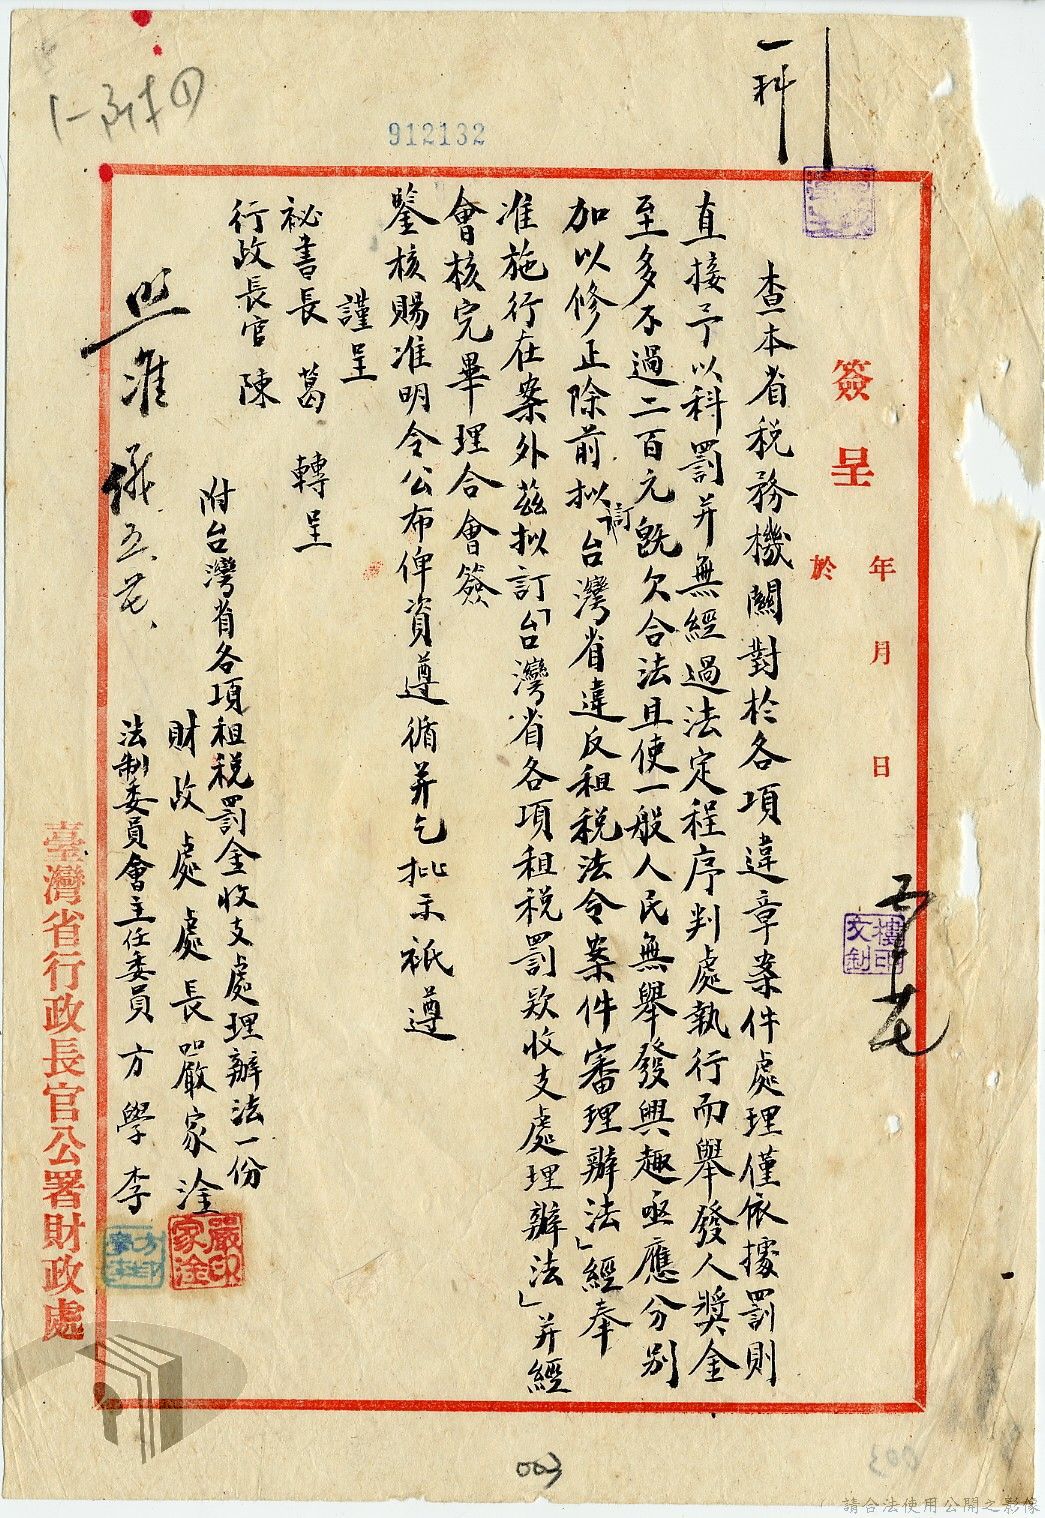 一科
1-附件①
912132
簽呈 年 月 日
於
查本省税務機關對於各項違章案件處理僅依據罰則
直接予以科罰并無經過法定程序判處執行而舉發人奬金
至多不過二百元既欠合法且使一般人民無舉發興趣亟應分别
加以修正除前拟訂「台灣省違反租税法令案件審理辦法」經奉
准施行在案外茲拟訂「台灣省各項租税罰款收支處理辦法」并經
會核完畢理合會簽
鑒核賜准明令公布俾資遵循并乞批示祇遵
謹呈
祕書長 葛 轉呈
行政長官 陳
附台灣省各項租税罰金收支處理辦法一份
財政處處長嚴家淦
嚴家淦印
法制委員會主任委員 方學李
照准 儀
臺灣省行政長官公署財政處
003
請合法使用公開之影像